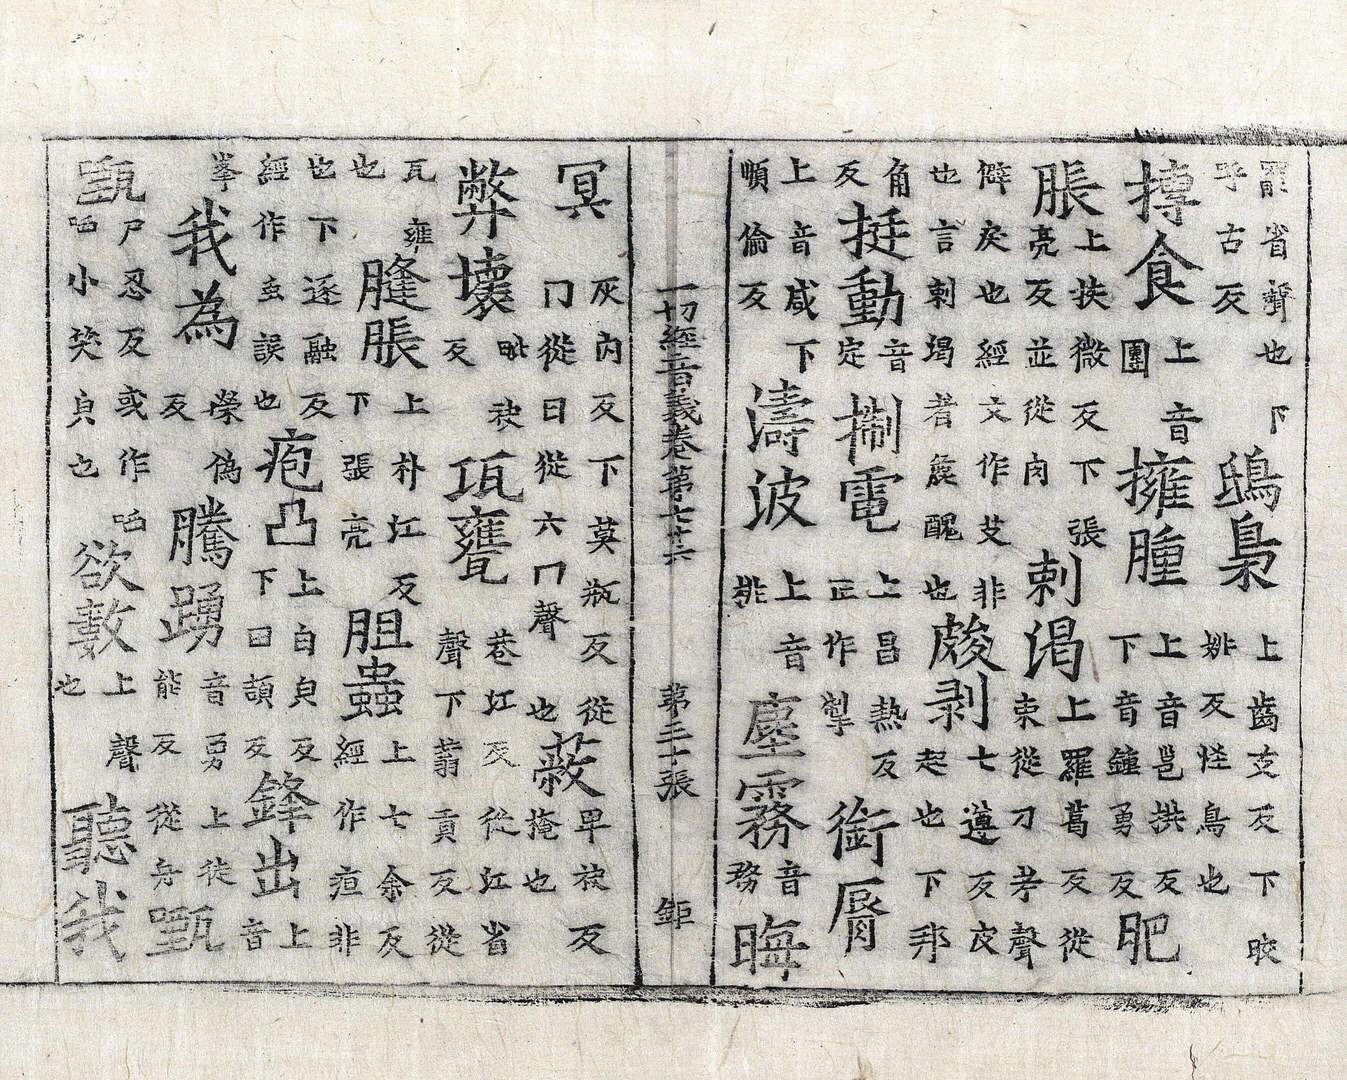 罷省聲也下
乎古反
鴟梟
上齒支反下咬
姚反怪鳥也
摶食
上音
團
擁腫
上音邕拱反
下音鍾勇反
肥
脹
上扶微反下張
亮反並從肉
剌渴
上羅葛反從
束從刀孝聲
僻戾也經文作艾非
也言剌渴者麁醜也
皴剥
七遵反皮
起也下邦
角
反
挺動
音
定
掣電
上昌熱反
正作掣
銜脣
上音咸下
順倫反
濤波
上音
桃
塵霧
音
務
晦
一切經音義卷第七十六 第三十張 鉅
冥
灰內反下莫瓶反從
冂從日從六冂聲也
蔽
卑袂反
掩也
弊壞
毗袂
反
瓨甕
巷江反從江省
聲下蓊貢反從
瓦雍
也
膖脹
上朴江反
下張亮
胆蟲
上七余反
經作疽非
也下逐融反
經作虫誤也
疱凸
上白皃反
下田頡反
鋒出
上
音
峯
我為
榮偽
反
騰踴
音勇上徒
能反從舟
甄
甄
尸忍反或作哂
哂小笑皃也
欲數
上聲
也
聽我